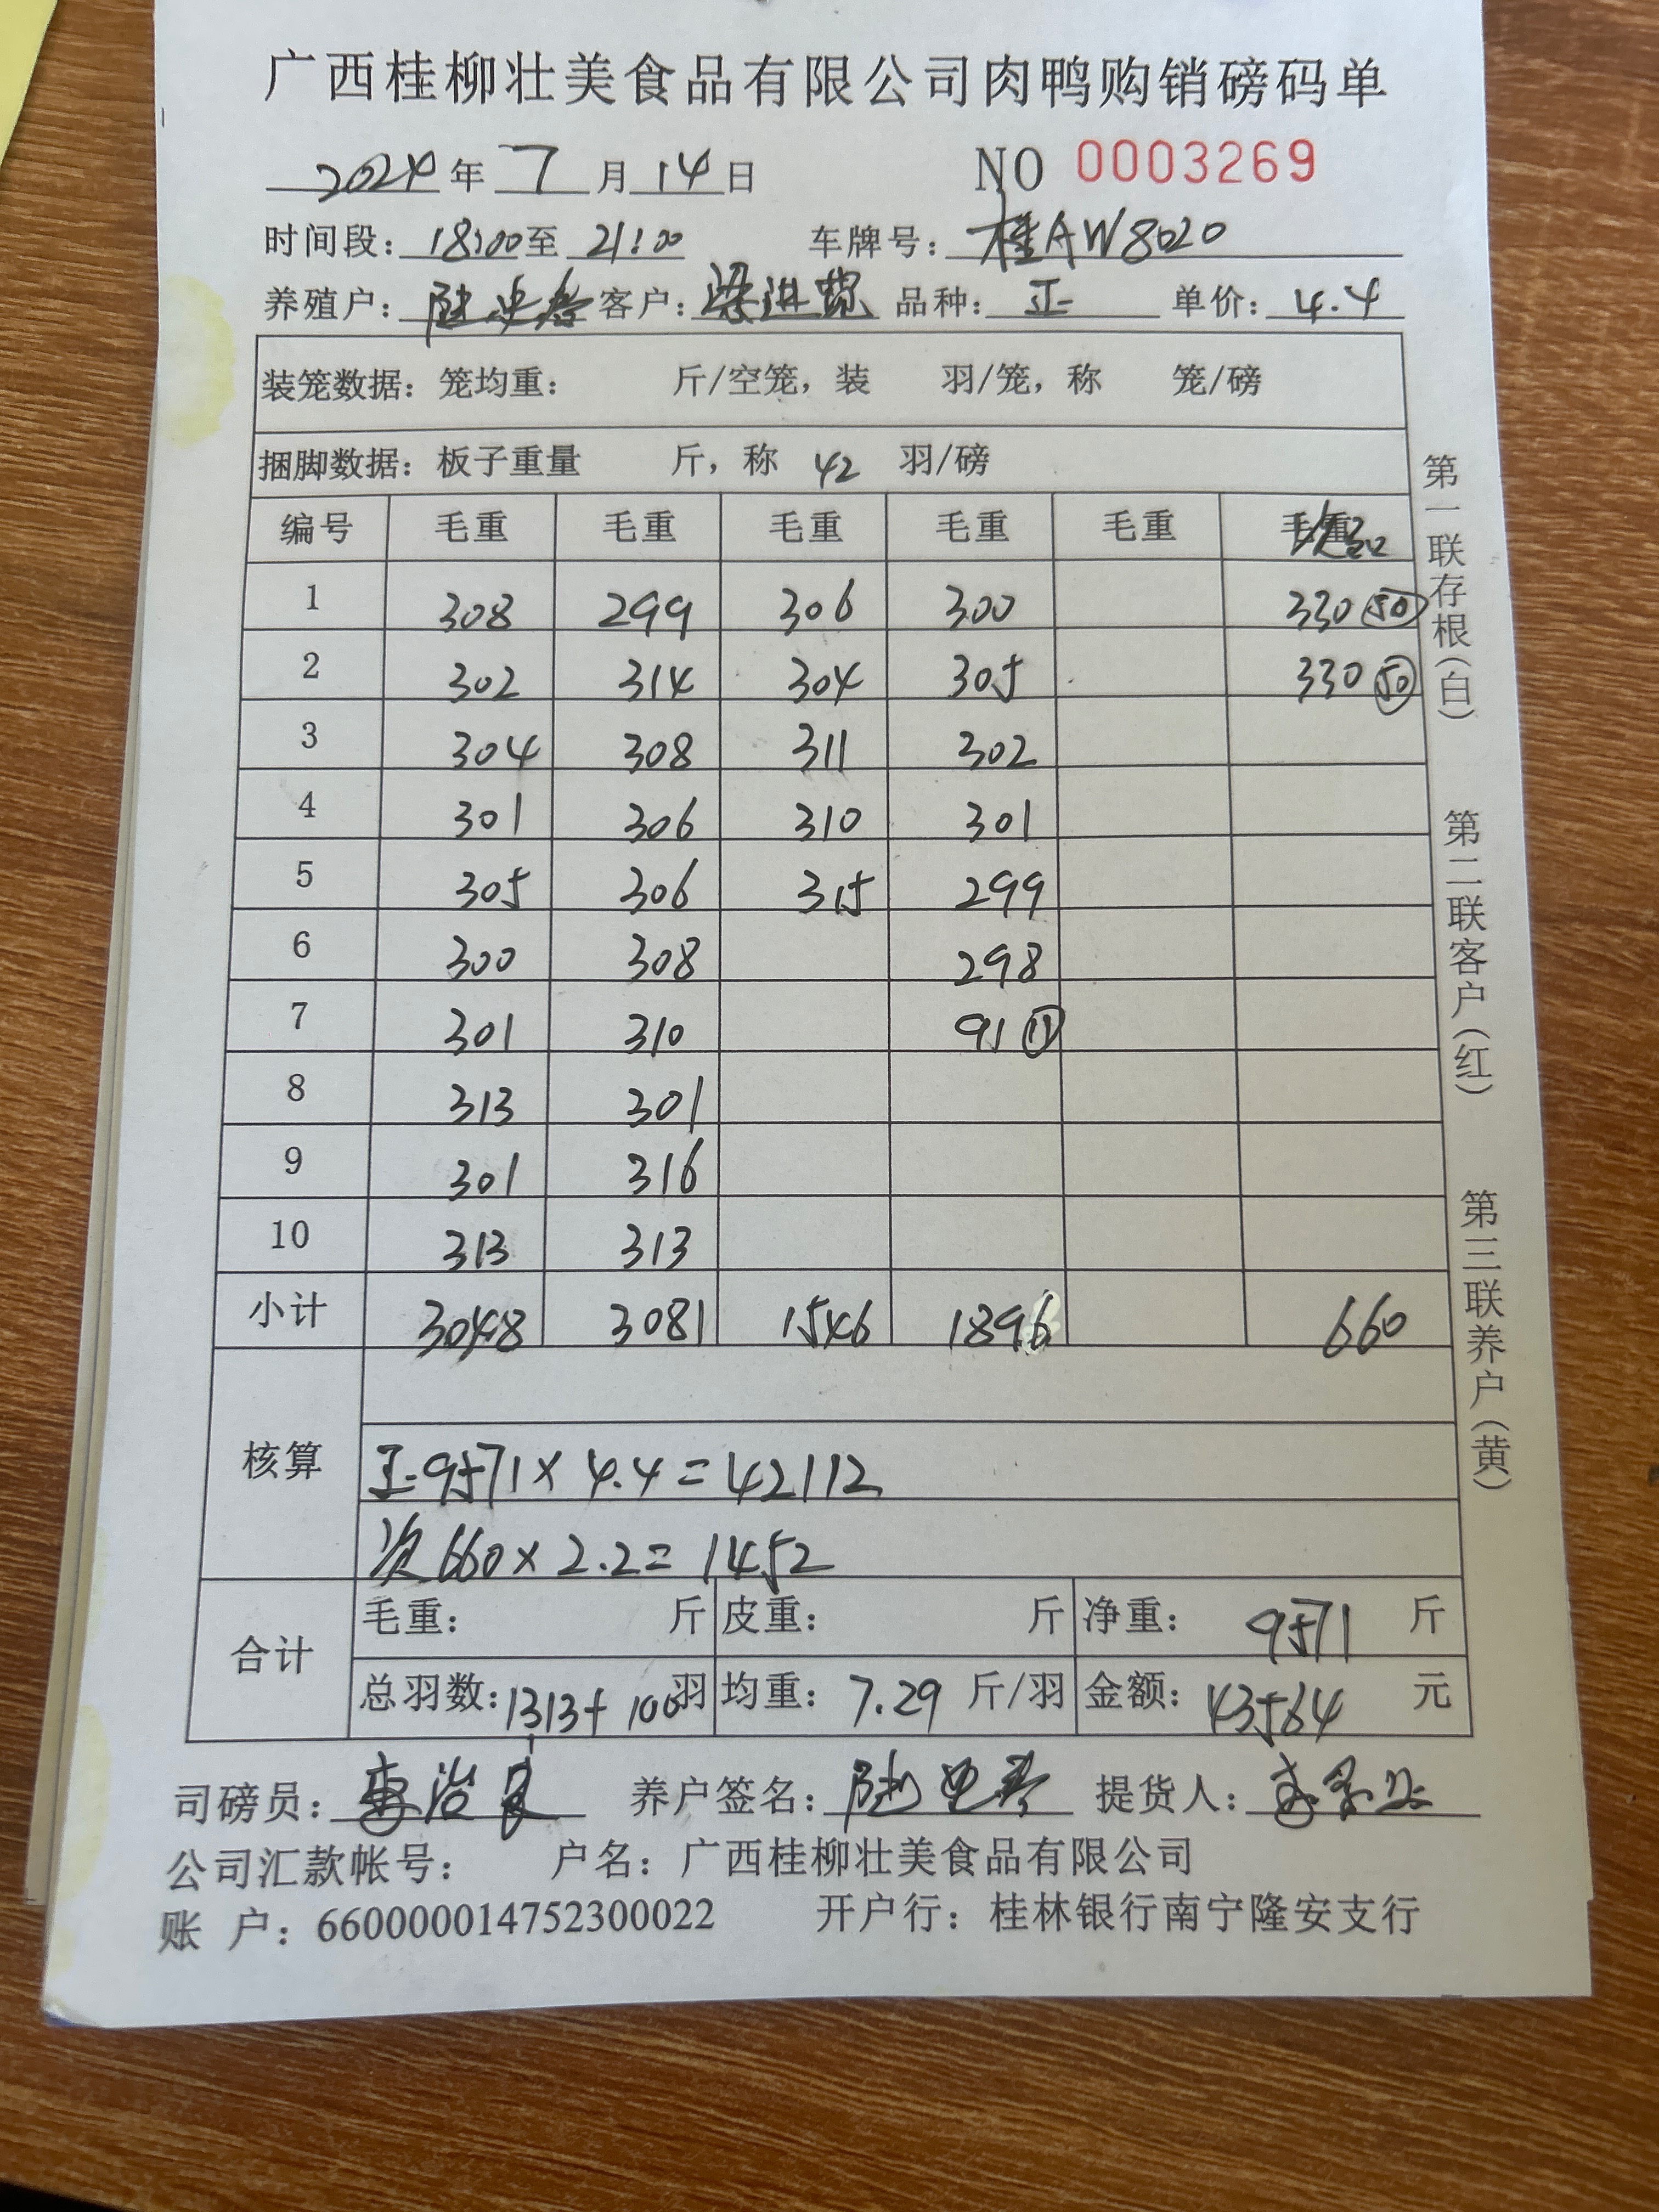 广西桂柳壮美食品有限公司肉鸭购销磅码单
2024年 7 月 14 日 NO 0003269
时间段: 18:00至 21:00 车牌号: 桂AW8020
养殖户: 陆 客户: 梁进 品种: 正 单价: 4.4
装笼数据: 笼均重: 斤/空笼, 装 羽/笼, 称 笼/磅
捆脚数据: 板子重量 斤, 称 42 羽/磅
编号 毛重 毛重 毛重 毛重 毛重 毛重
1 308 299 306 300 330 50
2 302 314 304 305 330 50
3 304 308 311 302
4 301 306 310 301
5 305 306 315 299
6 300 308 298
7 301 310 91 11
8 313 301
9 301 316
10 313 313
小计 3048 3081 1546 1896 660
核算
正 9571×4.4=42112
次 660×2.2=1452
合计
毛重: 斤 皮重: 斤 净重: 9571 斤
总羽数: 1313+100羽 均重: 7.29 斤/羽 金额: 43564 元
司磅员: 李治良 养户签名: 陆 提货人: 李
公司汇款帐号: 户名: 广西桂柳壮美食品有限公司
账 户: 660000014752300022 开户行: 桂林银行南宁隆安支行
第一联存根(白)
第二联客户(红)
第三联养户(黄)